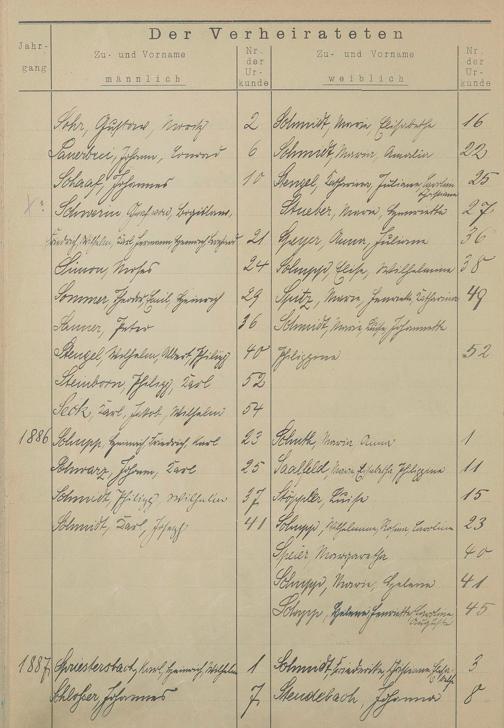 Der Verheirateten
Jahr-
gang
Zu- und Vorname
männlich
Nr.
der
Ur-
kunde
Zu- und Vorname
weiblich
Nr.
der
Ur-
kunde
Sohr, Gustav, 2 Schmidt, Marie Elisabethe 16
Johann, Conrad 6 Schmidt, Maria, Amalia 22
Schaaf, Johannes 10 Stengel, Catharina, Juliane, Caroline 25
Stueber, Maria, Henriette 27
Friedrich, Wilhelm, Karl Hermann, Heinrich 21 Geyer, Anna, Juliane 36
Simon, Moses 24 Schupp, Elise, Wilhelmine 38
Sommer, Emil, Heinrich 29 Sputz, Marie, Henriette Katharine 49
Sauner, Peter 36 Schmidt, Marie Luise Johannette
Stengel, Wilhelm, Albert, Philipp 40 Philippine 52
Steinborn, Philipp, Karl 52
Seck, Karl, Jakob, Wilhelm 54
1886 Schupp, Heinrich Friedrich, Karl 23 Maria Anna 1
Schwarz, Johann, Karl 25 Saalfeld, Marie Elisabethe Philippine 11
Schmidt, Philipp, Wilhelm 37 Stöppler, Luise 15
Schmidt, Karl, Joseph 41 Schupp, Wilhelmine, Rosine, Caroline 23
Speier, Margaretha 40
Schupp, Marie, Helene 41
Schupp, Helene Henriette Caroline 45
Auguste
1887 Schusterbarth, Karl, Heinrich, Wilhelm 1 Schmidt, Friederike, 3
Schlosser, Johannes 7 Steudebach Johanna 8